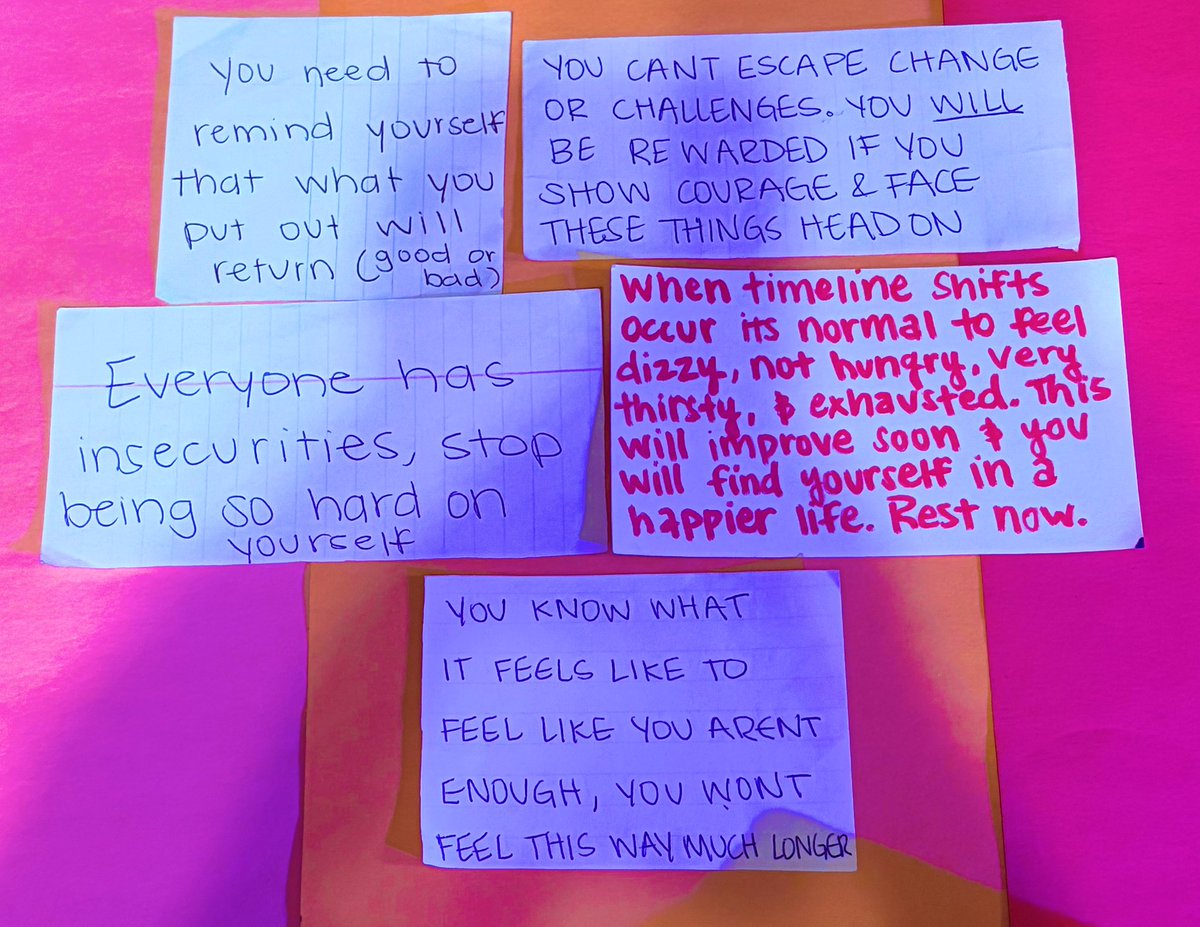 you need to
remind yourself
that what you
put out will
return (good or
bad)
YOU CANT ESCAPE CHANGE
OR CHALLENGES. YOU WILL
BE REWARDED IF YOU
SHOW COURAGE & FACE
THESE THINGS HEAD ON
Everyone has
insecurities, stop
being so hard on
yourself
When timeline shifts
occur its normal to feel
dizzy, not hungry, very
thirsty, & exhausted. This
will improve soon & you
will find yourself in a
happier life. Rest now.
YOU KNOW WHAT
IT FEELS LIKE TO
FEEL LIKE YOU ARENT
ENOUGH, YOU WONT
FEEL THIS WAY MUCH LONGER